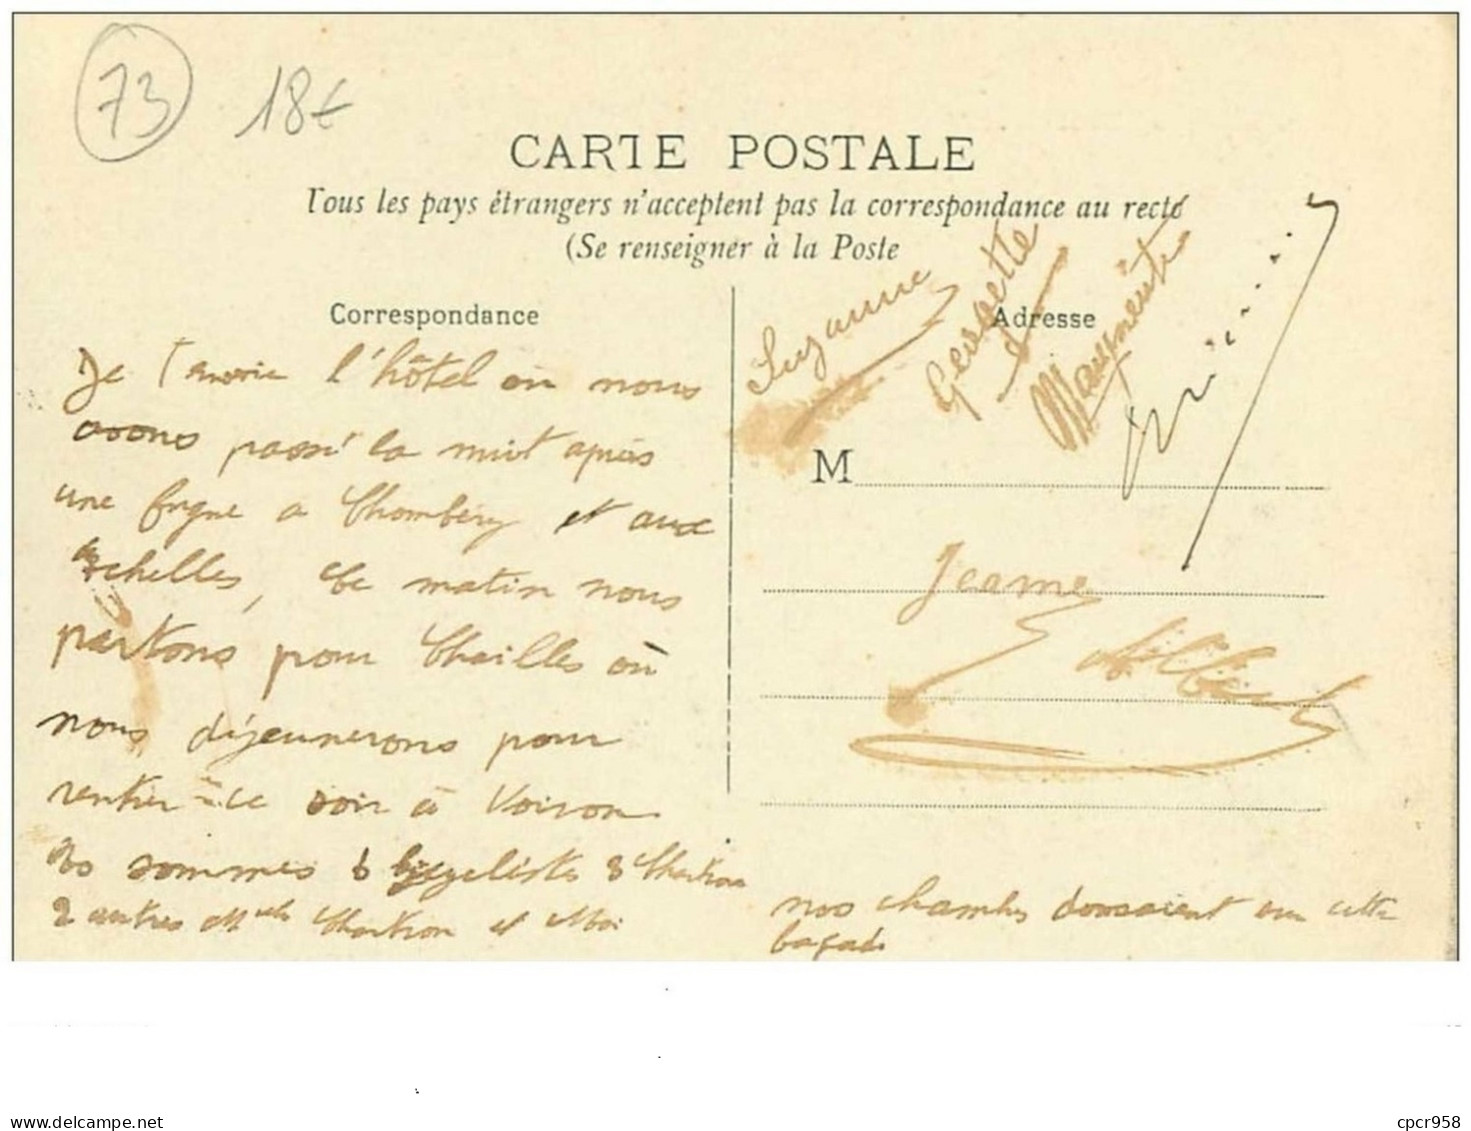 73 18€
CARTE POSTALE
Tous les pays étrangers n'acceptent pas la correspondance au recto
(Se renseigner à la Poste
Correspondance
Adresse
Je t'envoie l'hôtel où nous
avons passé la nuit après
une fugue a Chambéry et aux
echelles, ce matin nous
partons pour Chailles où
nous déjeunerons pour
rentrer ce soir à Voiron
sommes 6 bicyclistes 3
2 autres et Moi
Suzanne
Georgette
Marguerite
M
Jeanne
Albert
nos chambres donnaient sur cette
façade
cpcr958